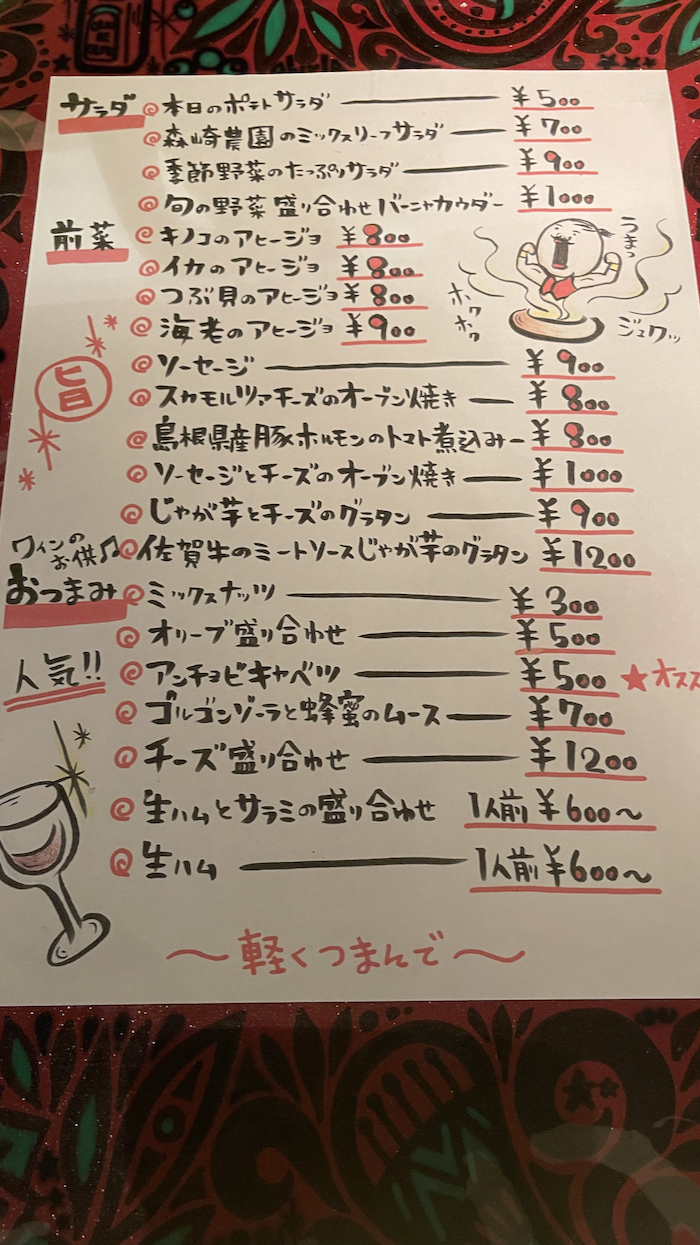 サラダ 本日のポテトサラダ ¥500
森崎農園のミックスリーフサラダ ¥700
季節野菜のたっぷりサラダ ¥900
旬の野菜盛り合わせバーニャカウダー ¥1000
前菜 キノコのアヒージョ ¥800
イカのアヒージョ ¥800
つぶ貝のアヒージョ ¥800
海老のアヒージョ ¥900
うまっ
ホワホワ
ジュワッ
旨
ソーセージ ¥900
スカモルツァチーズのオーブン焼き ¥800
島根県産豚ホルモンのトマト煮込み ¥800
ソーセージとチーズのオーブン焼き ¥1000
じゃが芋とチーズのグラタン ¥900
佐賀牛のミートソースじゃが芋のグラタン ¥1200
ワインの
お供♫
おつまみ ミックスナッツ ¥300
オリーブ盛り合わせ ¥500
人気!! アンチョビキャベツ ¥500 ★オスス
ゴルゴンゾーラと蜂蜜のムース ¥700
チーズ盛り合わせ ¥1200
生ハムとサラミの盛り合わせ 1人前¥600〜
生ハム 1人前¥600〜
〜軽くつまんで〜